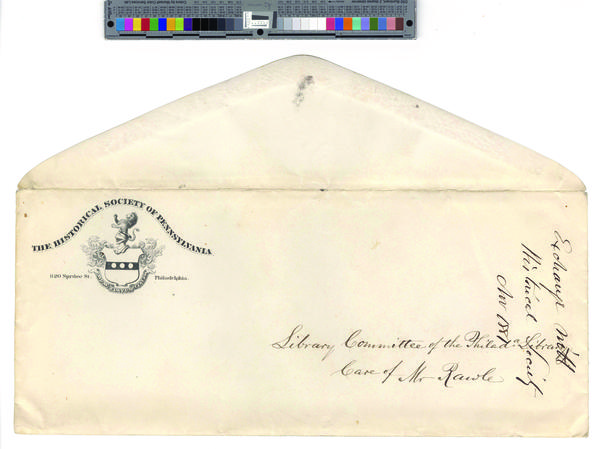 THE HISTORICAL SOCIETY OF PENNSYLVANIA
820 Spruce St. Philadelphia.
Library Committee of the Philad.a Library
Care of Mr Rawle
Exchange with
Historical Society
Nov 1881